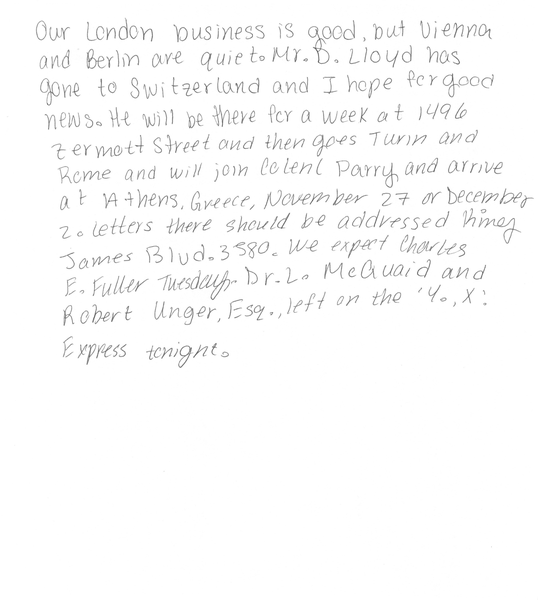 Our London business is good, but Vienna
and Berlin are quiet. Mr. D. Lloyd has
gone to Switzerland and I hope for good
news. He will be there for a week at 1496
Zermott Street and then goes Turin and
Rome and will join Colenl Parry and arrive
at Athens, Greece, November 27 or December
2. Letters there should be addressed
James Blvd. 3580. We expect Charles
E. Fuller Tuesday. Dr. L. McQuaid and
Robert Unger, Esq., left on the 'Y., X'
Express tonight.